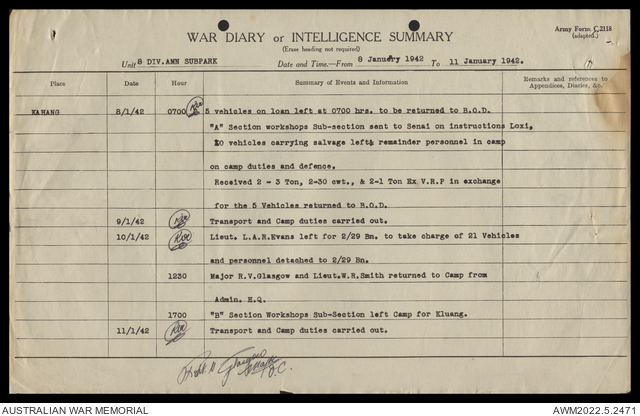 WAR DIARY or INTELLIGENCE SUMMARY
(Erase heading not required)
Army Form C.2118
(adapted.)
Unit 8 DIV.AMN SUBPARK Date and Time.—From 8 January 1942 To 11 January 1942.
Place Date Hour Summary of Events and Information Remarks and references to
Appendices, Diaries, &c.
KAHANG 8/1/42 0700 5 vehicles on loan left at 0700 hrs. to be returned to B.O.D.
"A" Section workshops Sub-section sent to Senai on instructions Loxi,
10 vehicles carrying salvage left& remainder personnel in camp
on camp duties and defence.
Received 2 - 3 Ton, 2-30 cwt., & 2-1 Ton Ex V.R.P in exchange
for the 5 Vehicles returned to B.O.D.
9/1/42 Transport and Camp duties carried out.
10/1/42 Lieut. L.A.R.Evans left for 2/29 Bn. to take charge of 21 Vehicles
and personnel detached to 2/29 Bn.
1230 Major R.V.Glasgow and Lieut.W.R.Smith returned to Camp from
Admin. H.Q.
1700 "B" Section Workshops Sub-Section left Camp for Kluang.
11/1/42 Transport and Camp duties carried out.
Glasgow
O.C.
AUSTRALIAN WAR MEMORIAL
AWM2022.5.2471